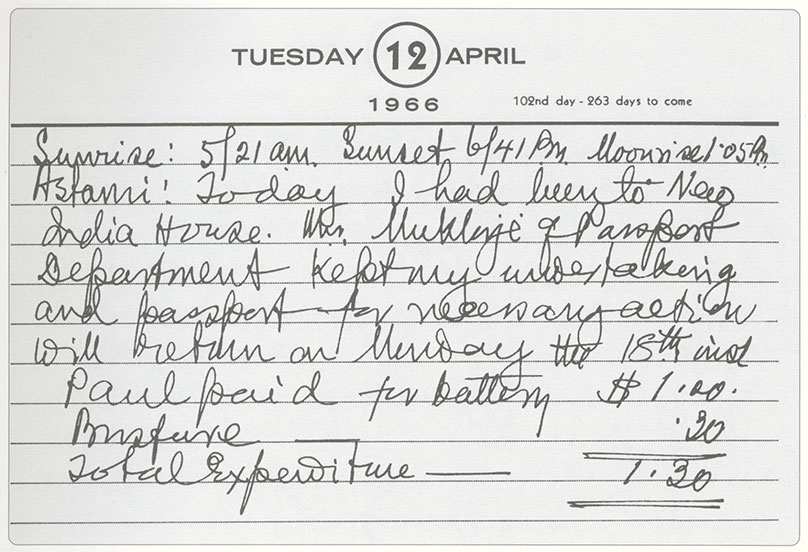 TUESDAY 12 APRIL
1966
102nd day - 263 days to come
Sunrise: 5/21 am. Sunset 6/41 Pm. Moonrise 1.05 Pm.
Astami: Today I had been to New
India House. Mr. Mukherji of Passport
Department kept my undertaking
and passport for necessary action
will return on Monday the 18th inst
Paul paid for battery $ 1.00.
Busfare .30
Total Expenditure 1.30